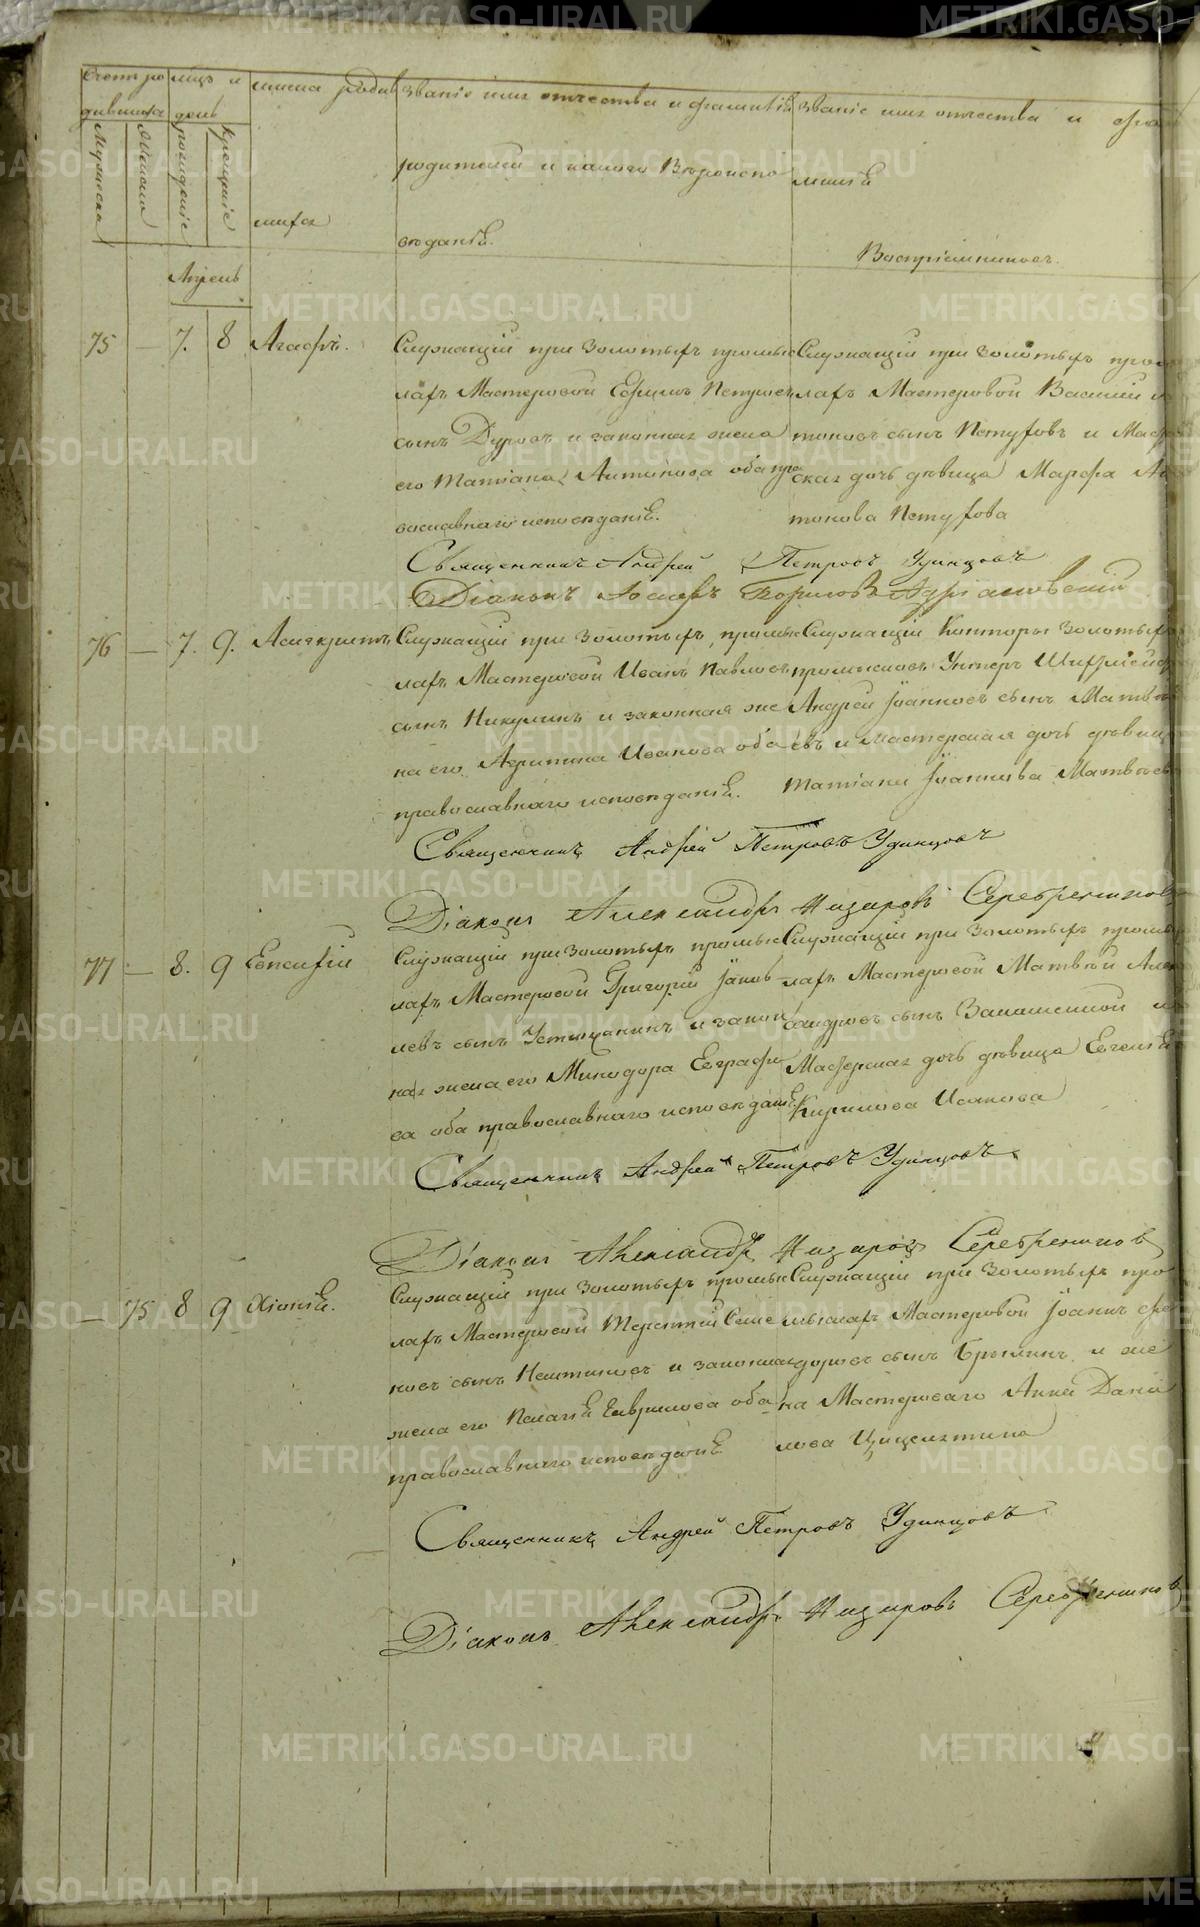 Счетъ ро
дившихся
Мужеска
Женска
мцъ и
день
рожденіе
крещеніе
имена родив
шихся
Званіе имя отчества и фамиліи
родителей и какого Вѣроиспо
вѣданія.
Званіе имя отчества и фа
миліи
Воспріемниковъ.
Апрель
75 — 7. 8 Агафъ.
Служащій при Золотыхъ промыс
лахъ Мастеровой Ефимъ Петровъ
сынъ Дуровъ и законная жена
его Татіана Антипова оба пра
вославнаго исповѣданія.
Служащій при Золотыхъ промы
лахъ Мастеровой Василій
тоновъ сынъ Петуховъ и Масте
ская дочь дѣвица Марфа Ан
тонова Петухова
Священникъ Андрей Петровъ Удинцовъ
Діаконъ Іосифъ Борисовъ Адріановскій
76 — 7. 9. Асигкритъ
Служащій при Золотыхъ промыс
лахъ Мастеровой Иванъ Павловъ
сынъ Никулинъ и законная же
на его Агрипина Иванова оба
православнаго исповѣданія.
Служащій Конторы Золотыхъ
промысловъ Унтеръ Шихтмейс
Андрей Іоанновъ сынъ Матвѣ
евъ и Мастерская дочь дѣвица
Татіана Іоаннова Матвѣева
Священникъ Андрей Петровъ Удинцовъ
Діаконъ Александръ Назаровъ Серебрениковъ
77 — 8. 9 Евпсихій
Служащій при Золотыхъ промыс
лахъ Мастеровой Григорій Іаков
левъ сынъ Устюжанинъ и закон
ная жена его Минодора Евграфо
ва оба православнаго исповѣданія
Служащій при Золотыхъ промыс
лахъ Мастеровой Матвѣй Алек
сандровъ сынъ
Мастерская дочь дѣвица Евгенія
Кирилова Исакова
Священникъ Андрей Петровъ Удинцовъ
Діаконъ Александръ Назаровъ Серебрениковъ
— 75 8 9 Хіонія.
Служащій при Золотыхъ промыс
лахъ Мастеровой Терентій Семе
новъ сынъ и законная
жена его Пелагія Гаврилова оба
православнаго исповѣданія
Служащій при Золотыхъ про
мыслахъ Мастеровой Іоаннъ Фе
доровъ сынъ Брылинъ и же
на Мастероваго Анна Дани
лова
Священникъ Андрей Петровъ Удинцовъ
Діаконъ Александръ Назаровъ Серебрениковъ
METRIKI.GASO-URAL.RU